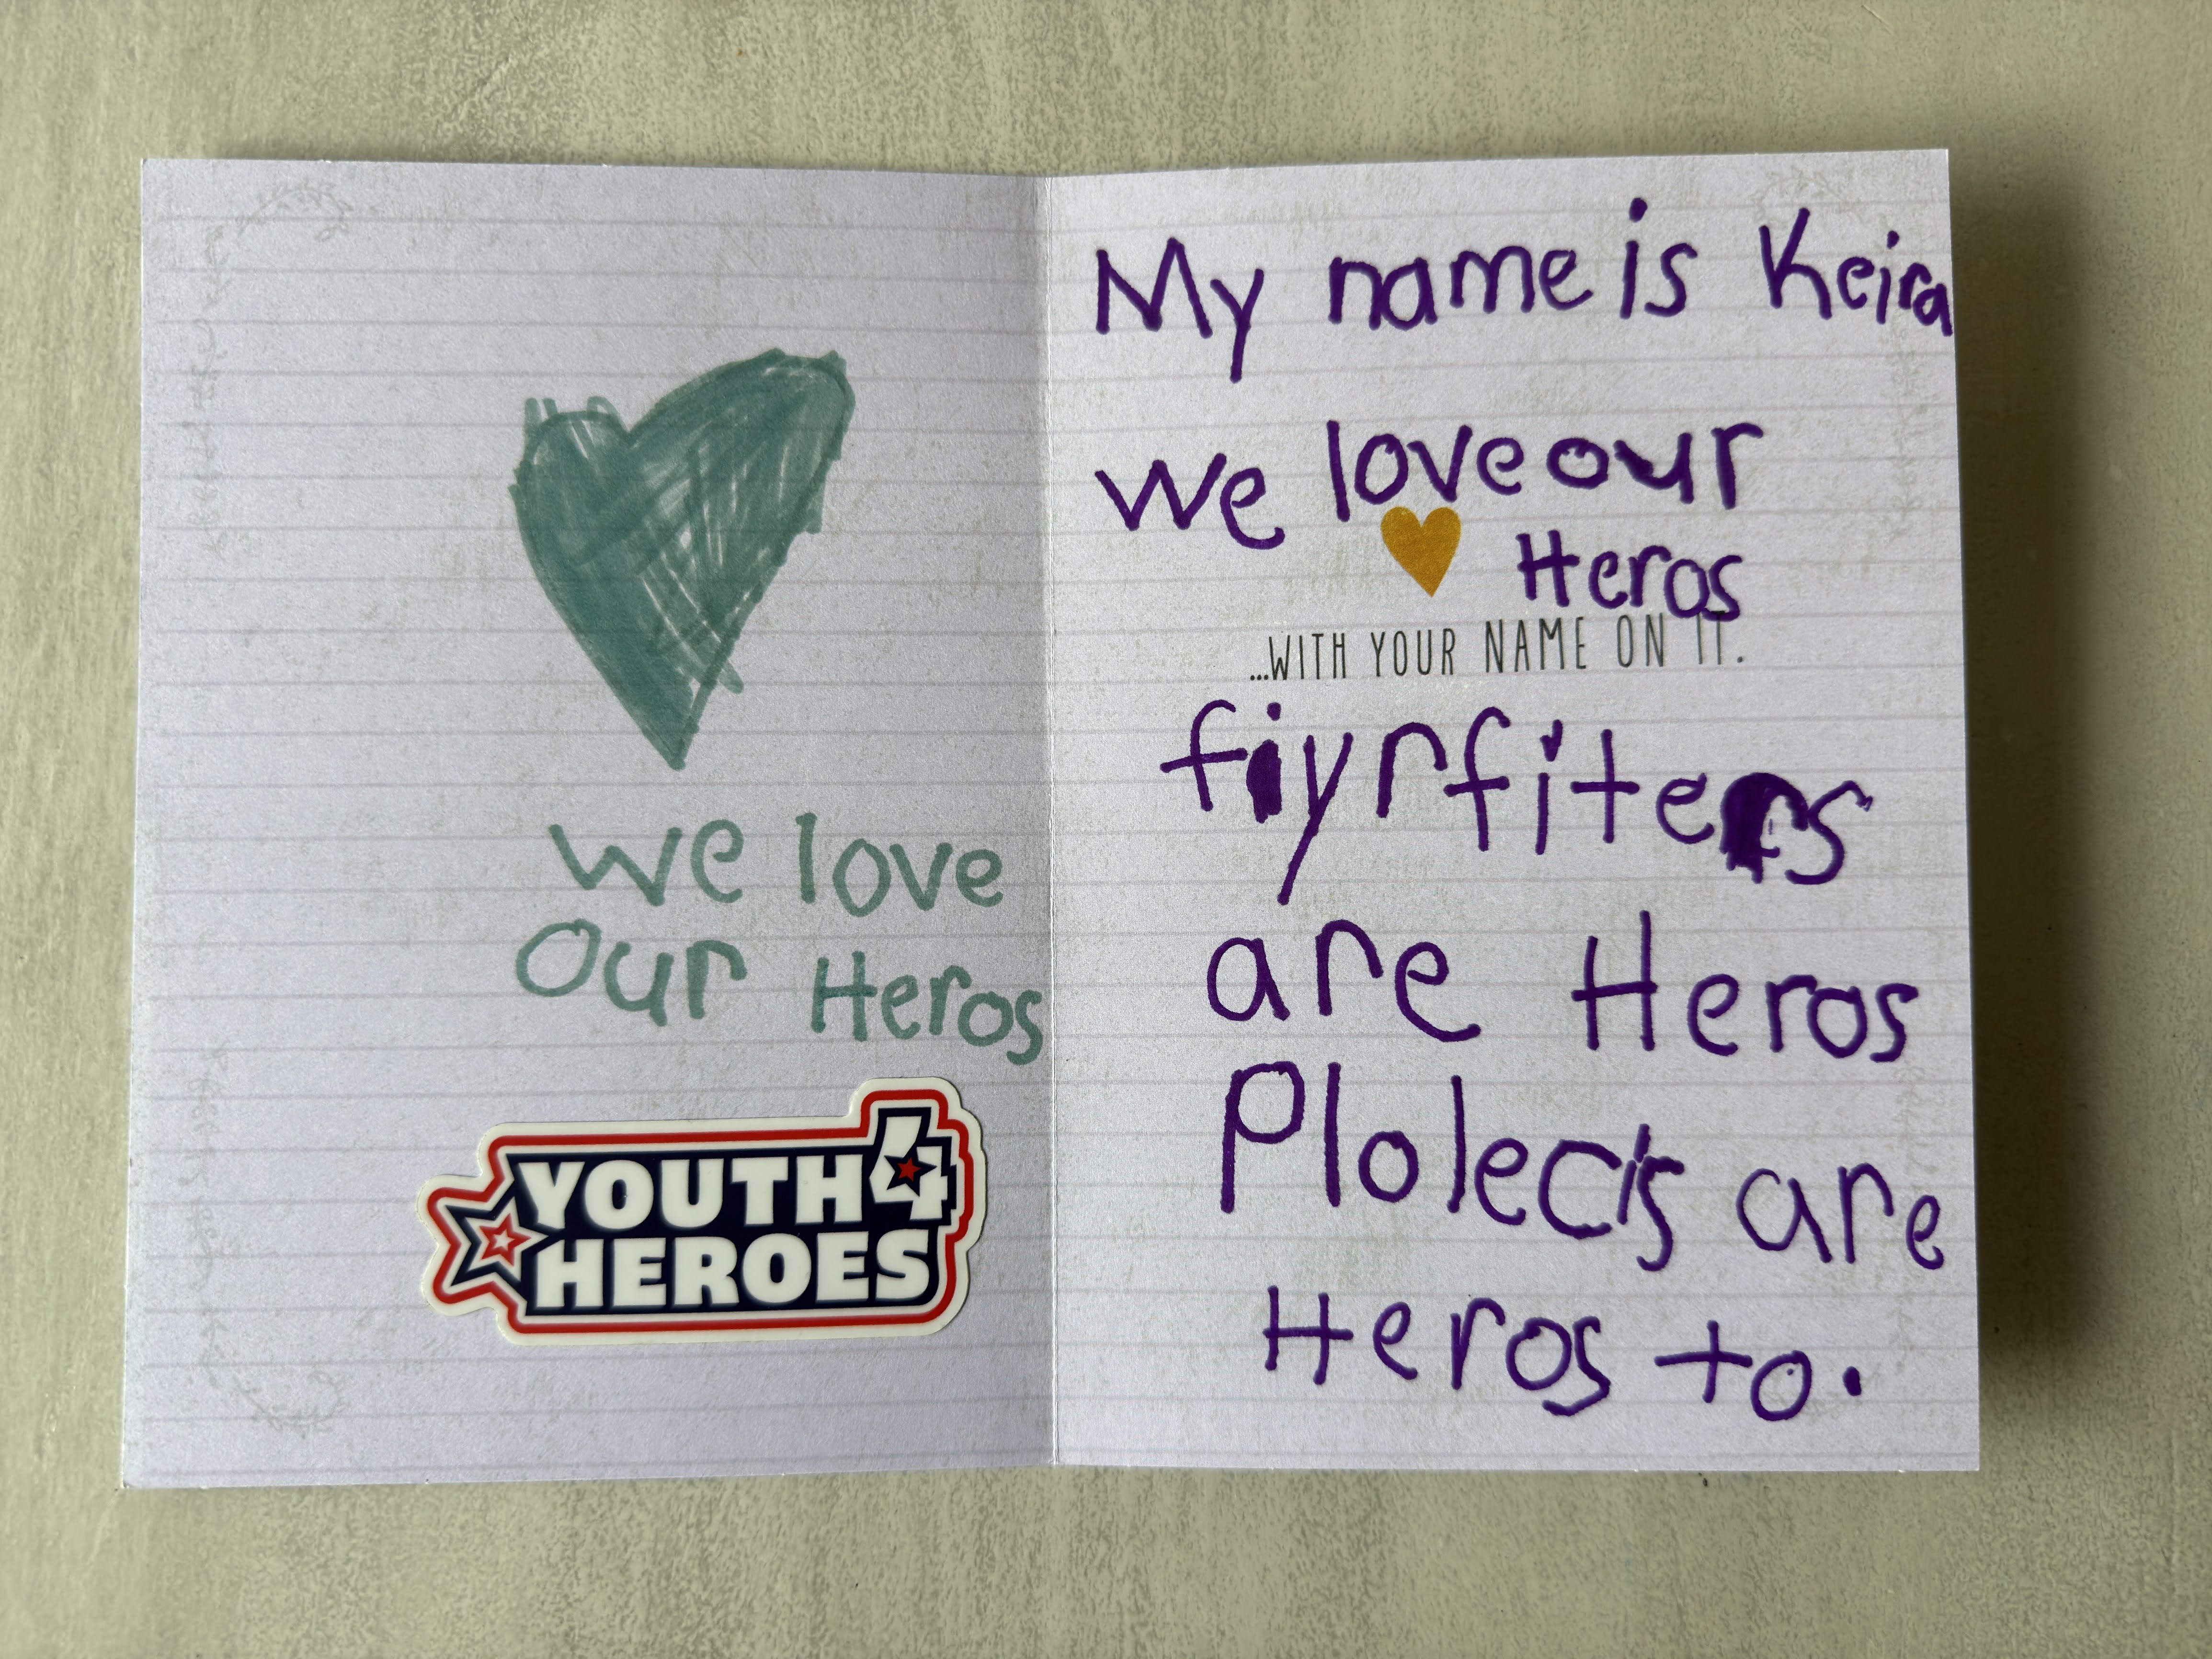 We love
our Heros
YOUTH4
HEROES
My name is Keira
We love our
Heros
...WITH YOUR NAME ON IT.
fiyrfiters
are Heros
Plolecis are
Heros to.